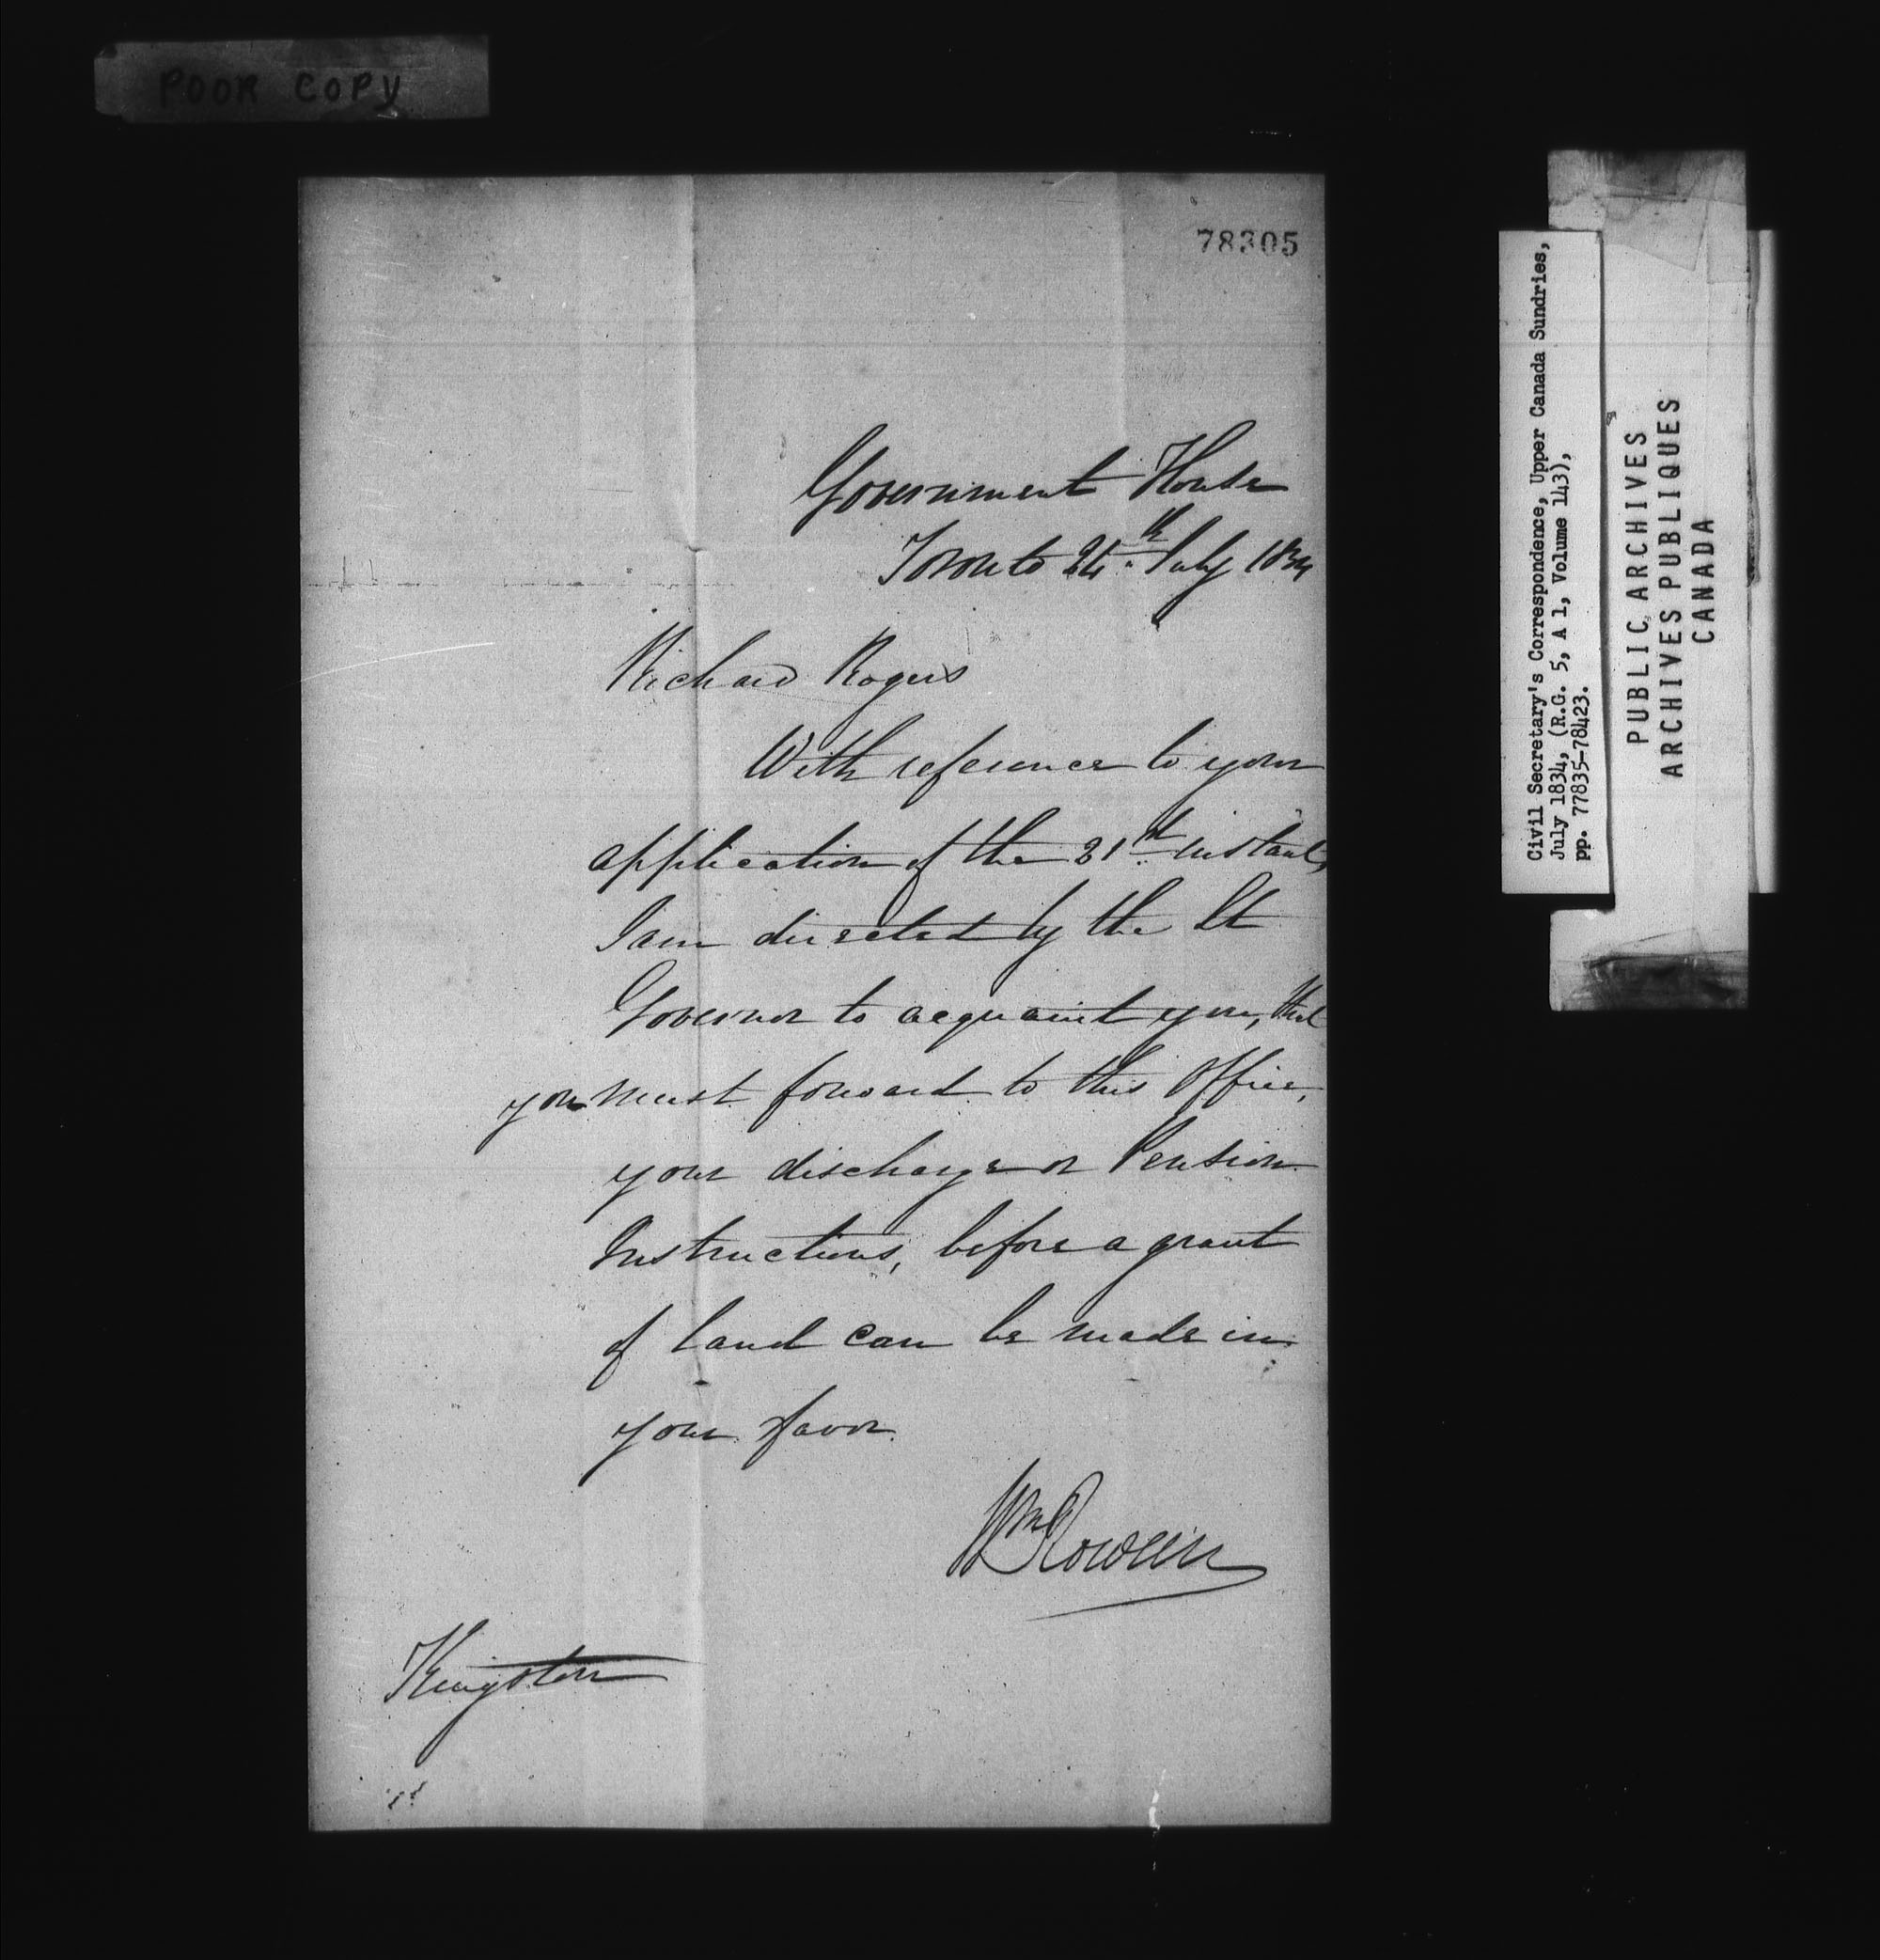 POOR COPY
78305
Government House
Toronto 24th July 1834
Richard Rogers
With reference to your
application of the 21st instant,
I am directed by the Lt
Governor to acquaint you, that
you must forward to this Office,
your discharge or Pension
Instructions, before a grant
of land can be made in
your favor.
Wm Rowan
Kingston
Civil Secretary's Correspondence, Upper Canada Sundries,
July 1834, (R.G. 5, A 1, Volume 143),
pp. 77835-78423.
PUBLIC ARCHIVES
ARCHIVES PUBLIQUES
CANADA